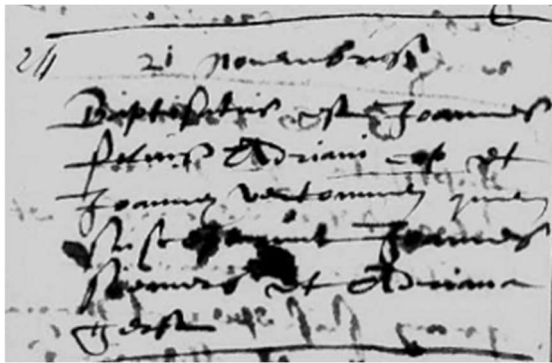 24 21 novembris
Baptisatus est Joannes
filius Adriani et
Joanna quem
susceperunt Joannes
et Adriana